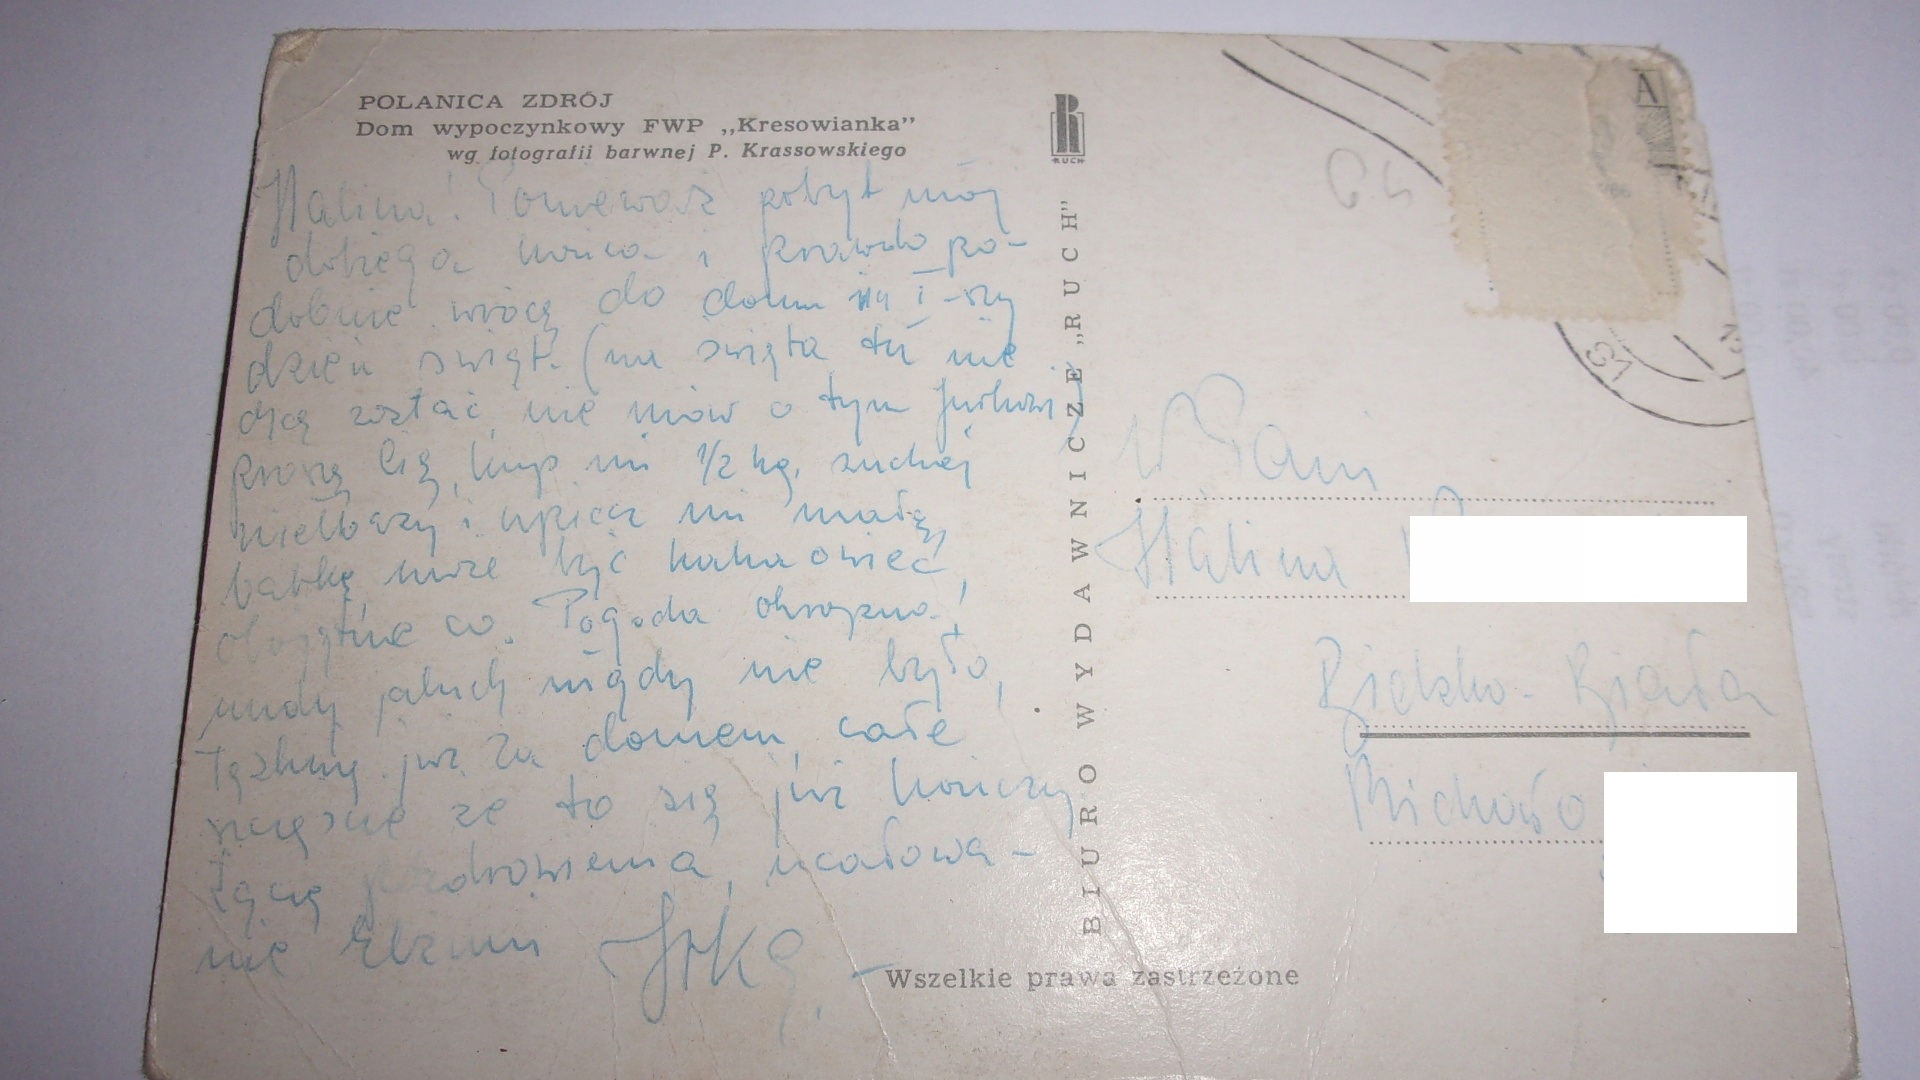 POLANICA ZDRÓJ
Dom wypoczynkowy FWP ,,Kresowianka”
wg fotografii barwnej P. Krassowskiego
RUCH
Halina! Ponieważ pobyt mój
dobiega końca i prawdopo-
dobnie wrócę do domu na I-szy
dzień świąt. (na święta tu nie
chcę zostać, nie mów o tym Jurkowi)
proszę Cię, kup mi 1/2 kg. suchej
kiełbasy i upiecz mi małą
babkę, może być kakaowiec,
obojętnie co. Pogoda okropna!
nudy jakich nigdy nie było,
tęsknię już za domem, całe
szczęście że to się już kończy
Łączę pozdrowienia, ucałowa-
nie
BIURO WYDAWNICZE „RUCH"
Wszelkie prawa zastrzeżone
A
W Pani
Halina
Bielsko-Biała